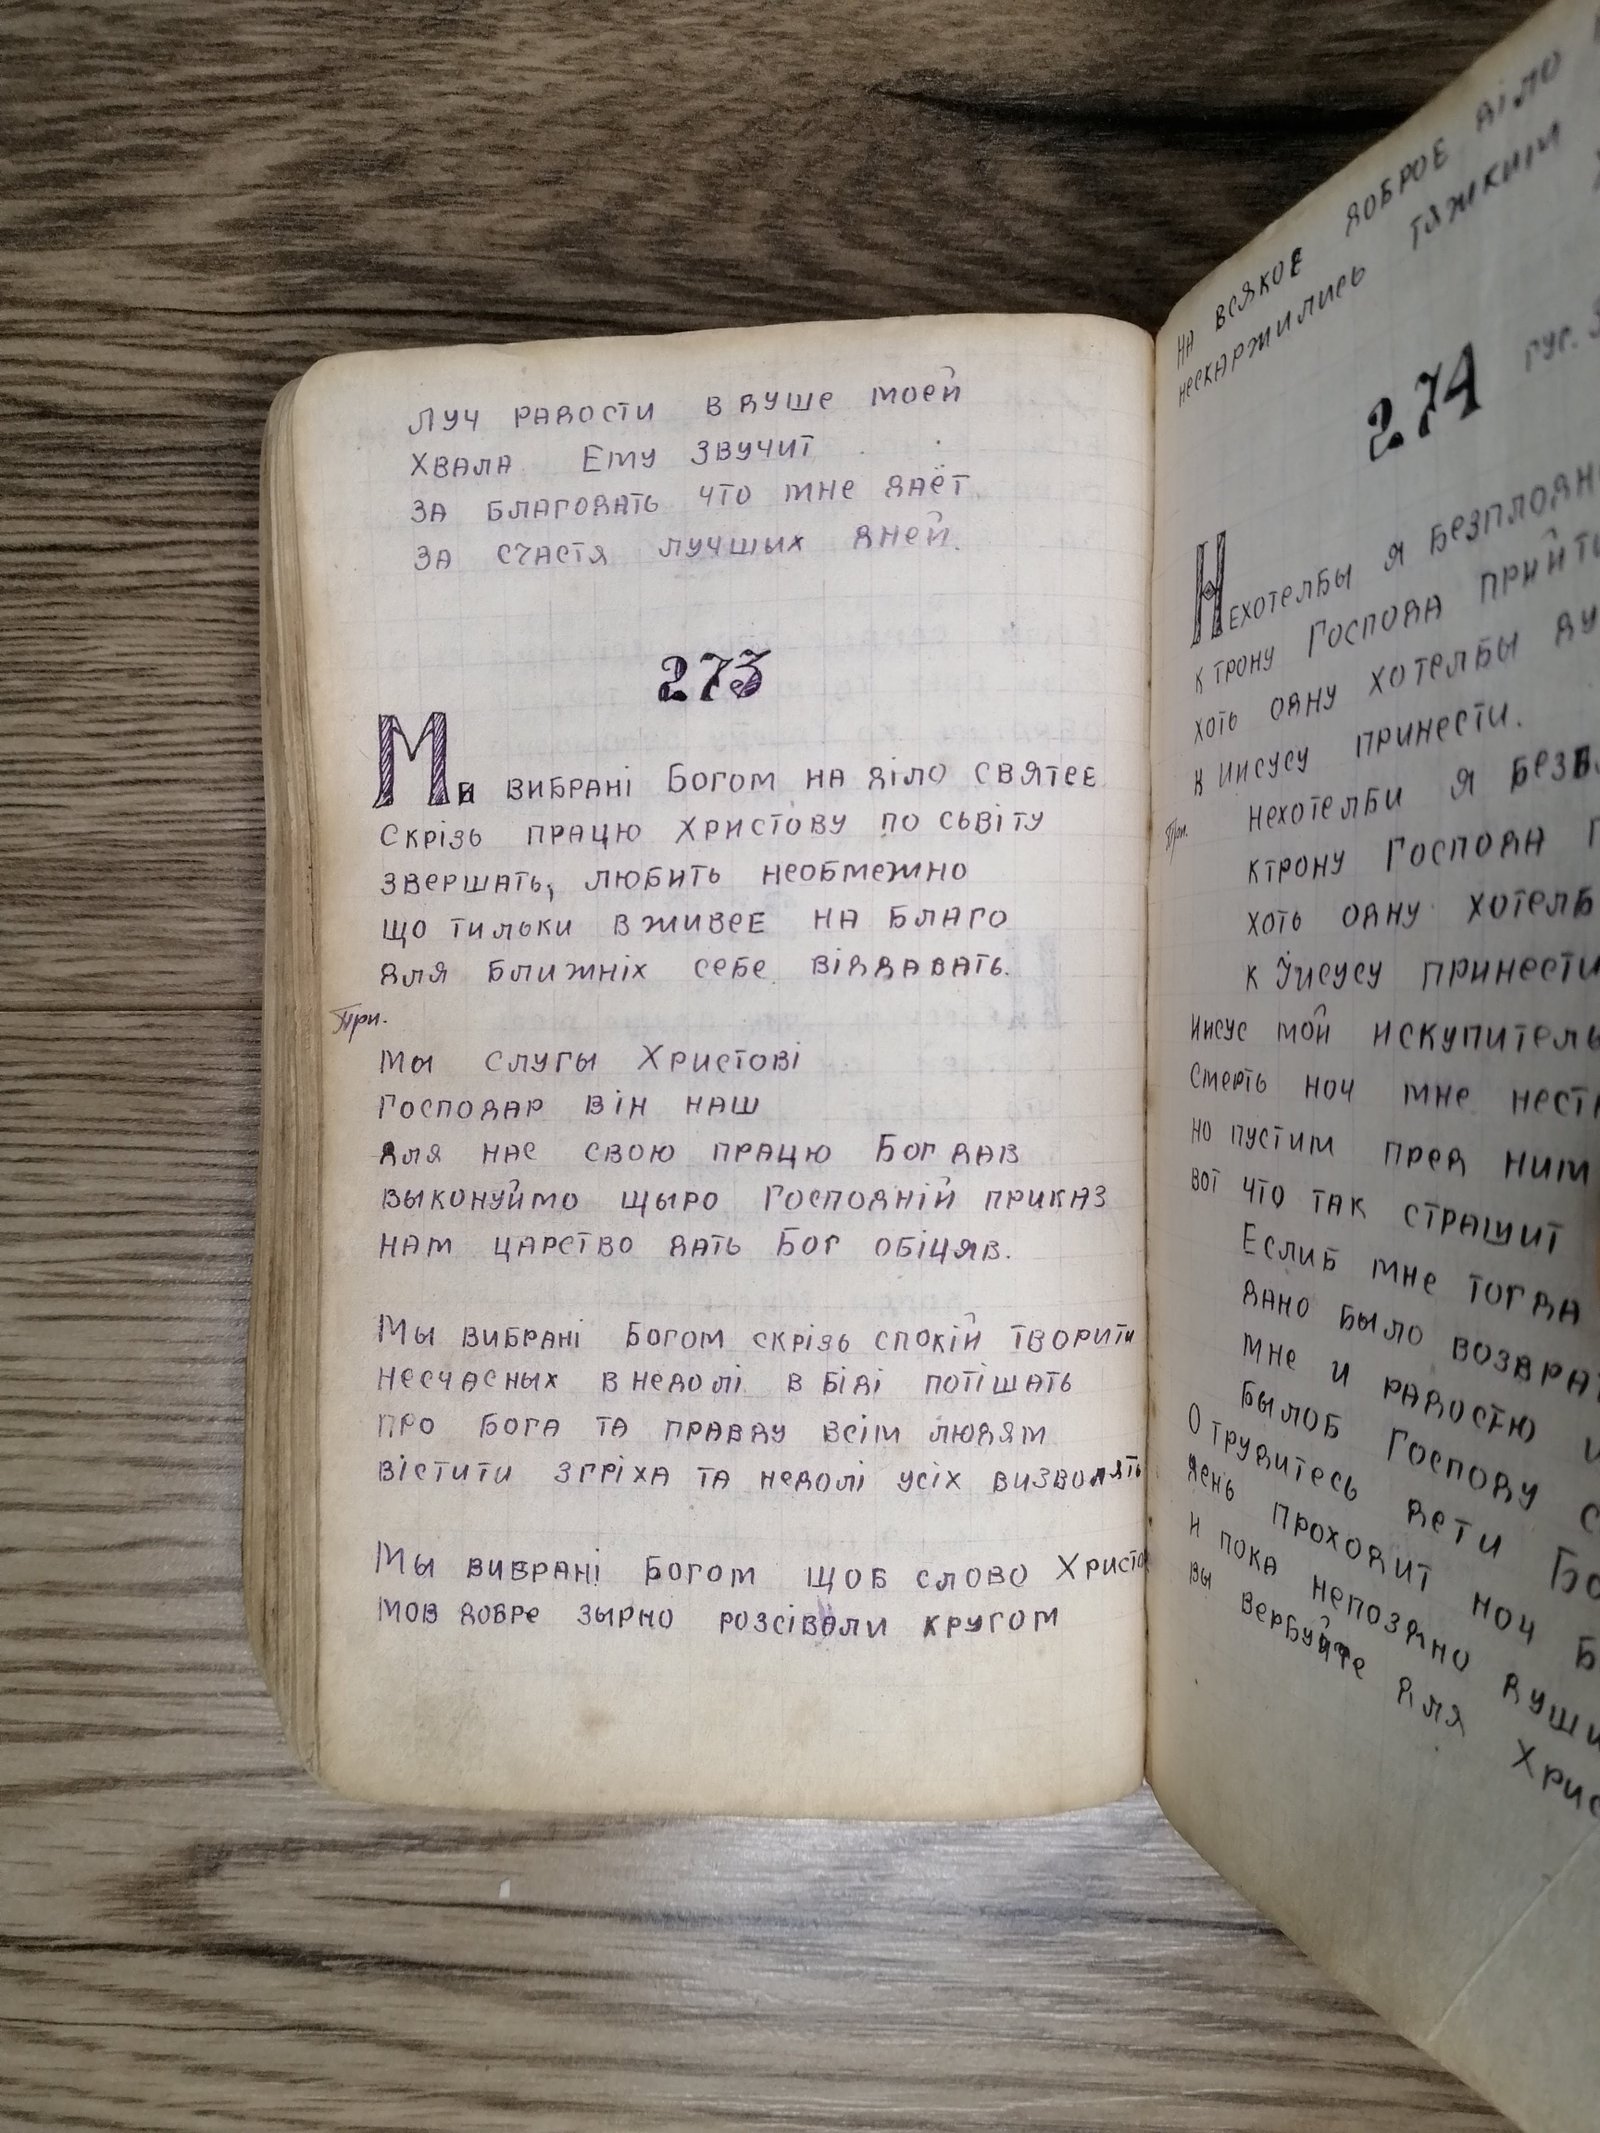 Луч радости в душе моей
Хвала Ему звучит
за благодать что мне даёт
за счастя лучших дней.
273
Ми вибрані Богом на діло святеє
Скрізь працю Христову по сьвіту
звершать, любить необмежно
що тильки вживеє на благо
для ближніх себе віддавать.
При.
Мы слугы Христові
Господар він наш
для нас свою працю Бог дав
выконуймо щыро Господній приказ
нам царство дать Бог обіцяв.
Мы вибрані Богом скрізь спокій творити
несчасных в недолі в біді потішать
про Бога та правду всім людям
вістити згріха та недолі усіх визволять
Мы вибрані Богом щоб слово Христо
мов добре зырно розсівали кругом
на всякоє доброє діло
нескаржились тяжким
274
гус. 3
Нехотелбы я безплодн
к трону Господа прийти
хоть одну хотелбы ду
к Иисусу принести.
При.
нехотелби я безпл
ктрону Господа п
хоть одну хотелб
к Иисусу принести
Иисус мой искупитель
Смерть ноч мне нест
но пустим пред ним
вот что так страшит
Еслиб мне тогда
дано было возврат
мне и радостю и
былоб Господу с
О трудитесь дети Бо
день проходит ноч б
и пока непоздно души
вы вербуйте для Хрис